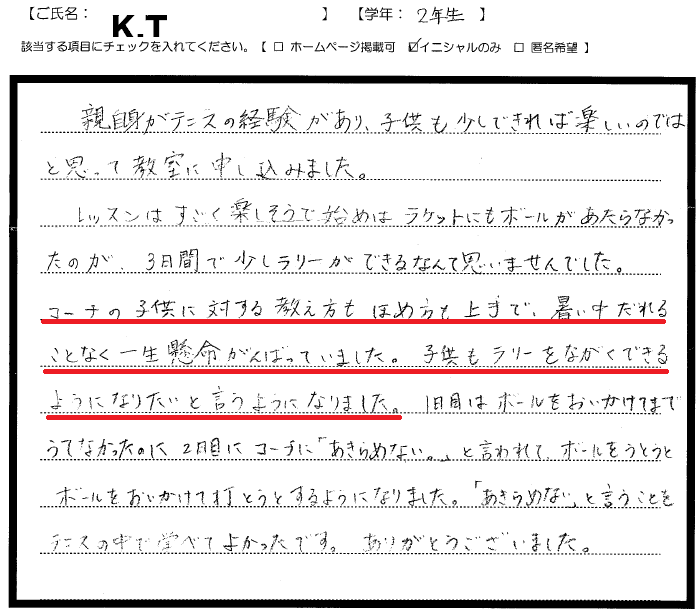 【ご氏名： K.T 】 【学年： 2年生 】
該当する項目にチェックを入れてください。【 □ ホームページ掲載可 ☑イニシャルのみ □ 匿名希望 】
親自身がテニスの経験があり、子供も少しできれば楽しいのでは
と思って教室に申し込みました。
レッスンはすごく楽しそうで始めはラケットにもボールがあたらなかっ
たのが、3日間で少しラリーができるなんて思いませんでした。
コーチの子供に対する教え方もほめ方も上手で、暑い中だれる
ことなく一生懸命がんばっていました。子供もラリーをながくできる
ようになりたいと言うようになりました。1日目はボールをおいかけてまで
うてなかったのに2日目にコーチに「あきらめない。」と言われて、ボールをうとうと
ボールをおいかけて打とうとするようになりました。「あきらめない」と言うことを
テニスの中で学べてよかったです。ありがとうございました。